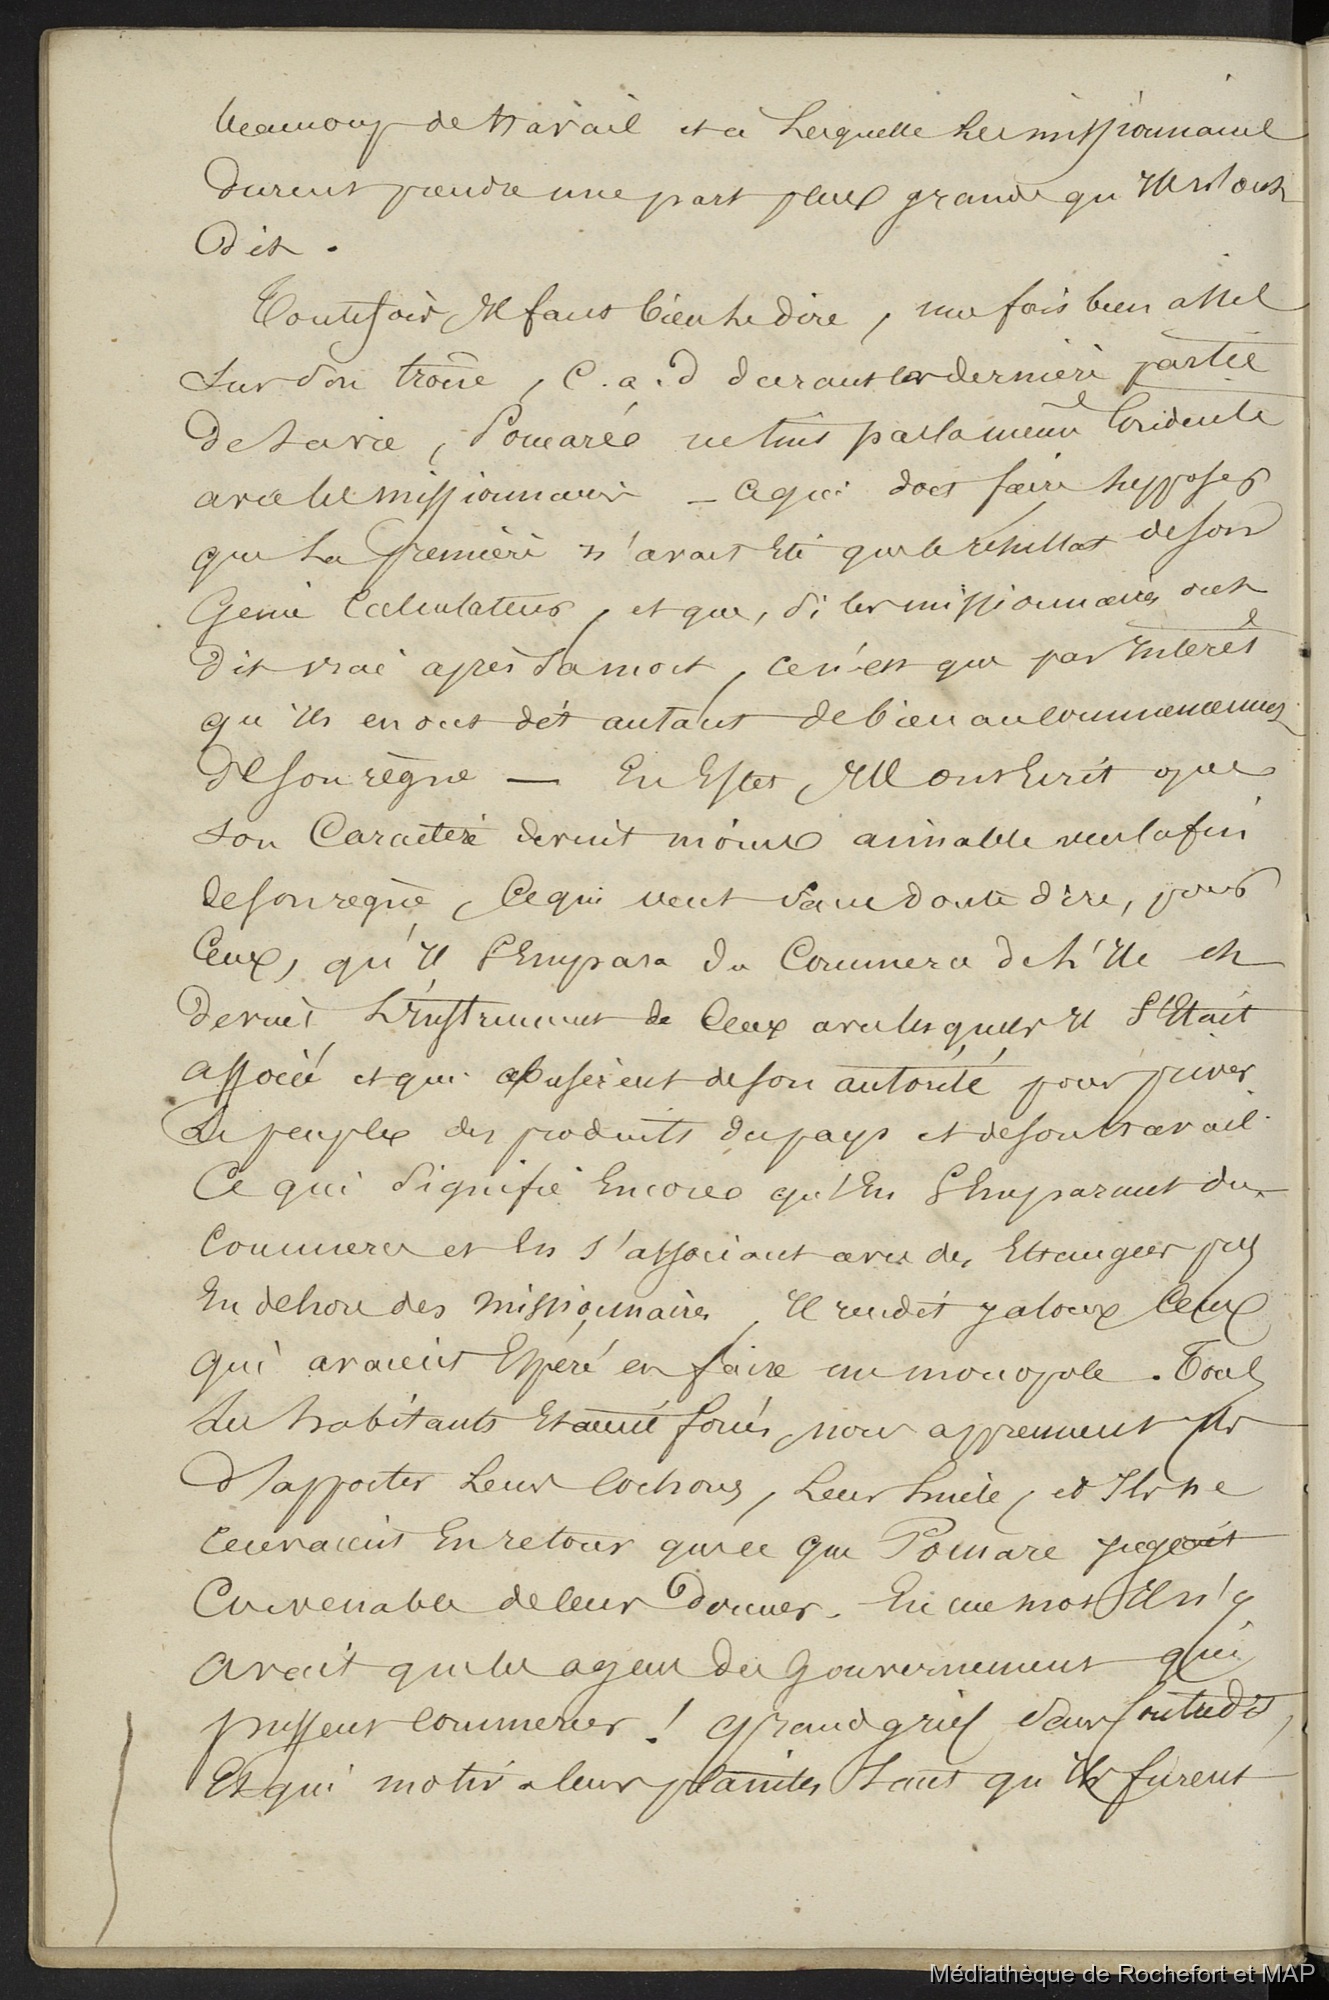 beaucoup de travail et à laquelle les missionnaires
durent prendre une part plus grande qu'ils n'ont
dit.
Toutefois, il faut bien le dire, une fois bien assis
sur son trône, c.a.d durant la dernière partie
de sa vie, Pomaré ne tint pas la même conduite
avec les missionnaires — ce qui doit faire supposer
que la première n'avait été que le résultat de son
génie calculateur, et que, si les missionnaires ont
dit vrai après sa mort, ce n'est que par intérêt
qu'ils en ont dit autant de bien au commencement
de son règne — En effet, ils ont écrit que
son caractère devint moins aimable vers la fin
de son règne, ce qui veut sans doute dire, pour
ceux, qu'il s'empara du commerce de l'île et
devint l'instrument de ceux avec lesquels il s'était
associé et qui abusèrent de son autorité pour priver
le peuple des produits du pays et de son travail
Ce qui signifie encore qu'en s'emparant du
commerce et en s'associant avec des étrangers pris
en dehors des missionnaires, il rendit jaloux ceux
qui avaient espéré en faire un monopole. Tous
les habitants étaient forcés, nous apprennent ils
d'apporter leurs cochons, leur huile, et ils ne
recevaient en retour que ce que Pomare jugeait
convenable de leur donner. En un mot il n'y
avait que les agens du gouvernement qui
pussent commercer! grand grief sans contredit,
et qui motiva leurs plaintes tant qu'ils furent
Médiathèque de Rochefort et MAP